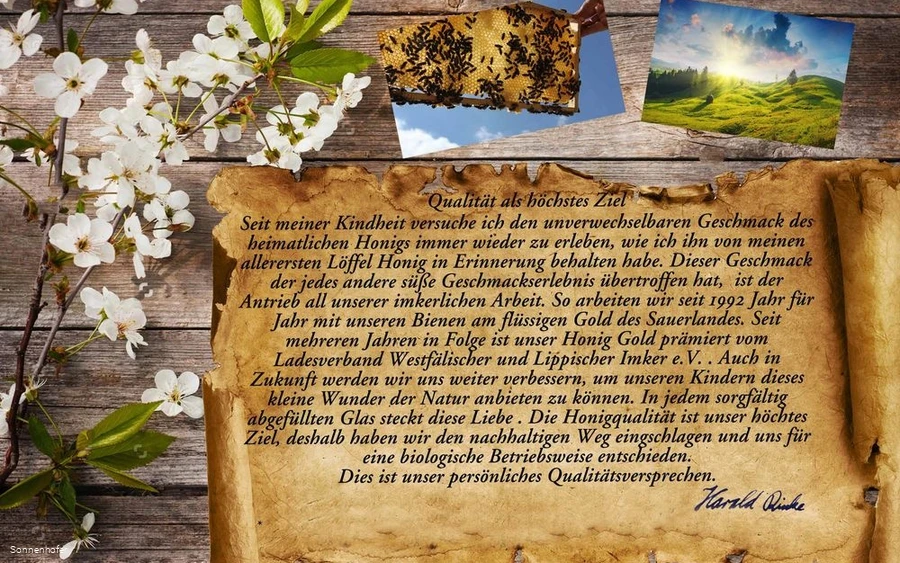 Qualität als höchstes Ziel
Seit meiner Kindheit versuche ich den unverwechselbaren Geschmack des
heimatlichen Honigs immer wieder zu erleben, wie ich ihn von meinen
allerersten Löffel Honig in Erinnerung behalten habe. Dieser Geschmack
der jedes andere süße Geschmackserlebnis übertroffen hat, ist der
Antrieb all unserer imkerlichen Arbeit. So arbeiten wir seit 1992 Jahr für
Jahr mit unseren Bienen am flüssigen Gold des Sauerlandes. Seit
mehreren Jahren in Folge ist unser Honig Gold prämiert vom
Ladesverband Westfälischer und Lippischer Imker e.V. . Auch in
Zukunft werden wir uns weiter verbessern, um unseren Kindern dieses
kleine Wunder der Natur anbieten zu können. In jedem sorgfältig
abgefüllten Glas steckt diese Liebe . Die Honigqualität ist unser höchtes
Ziel, deshalb haben wir den nachhaltigen Weg eingschlagen und uns für
eine biologische Betriebsweise entschieden.
Dies ist unser persönliches Qualitätsversprechen.
Harald